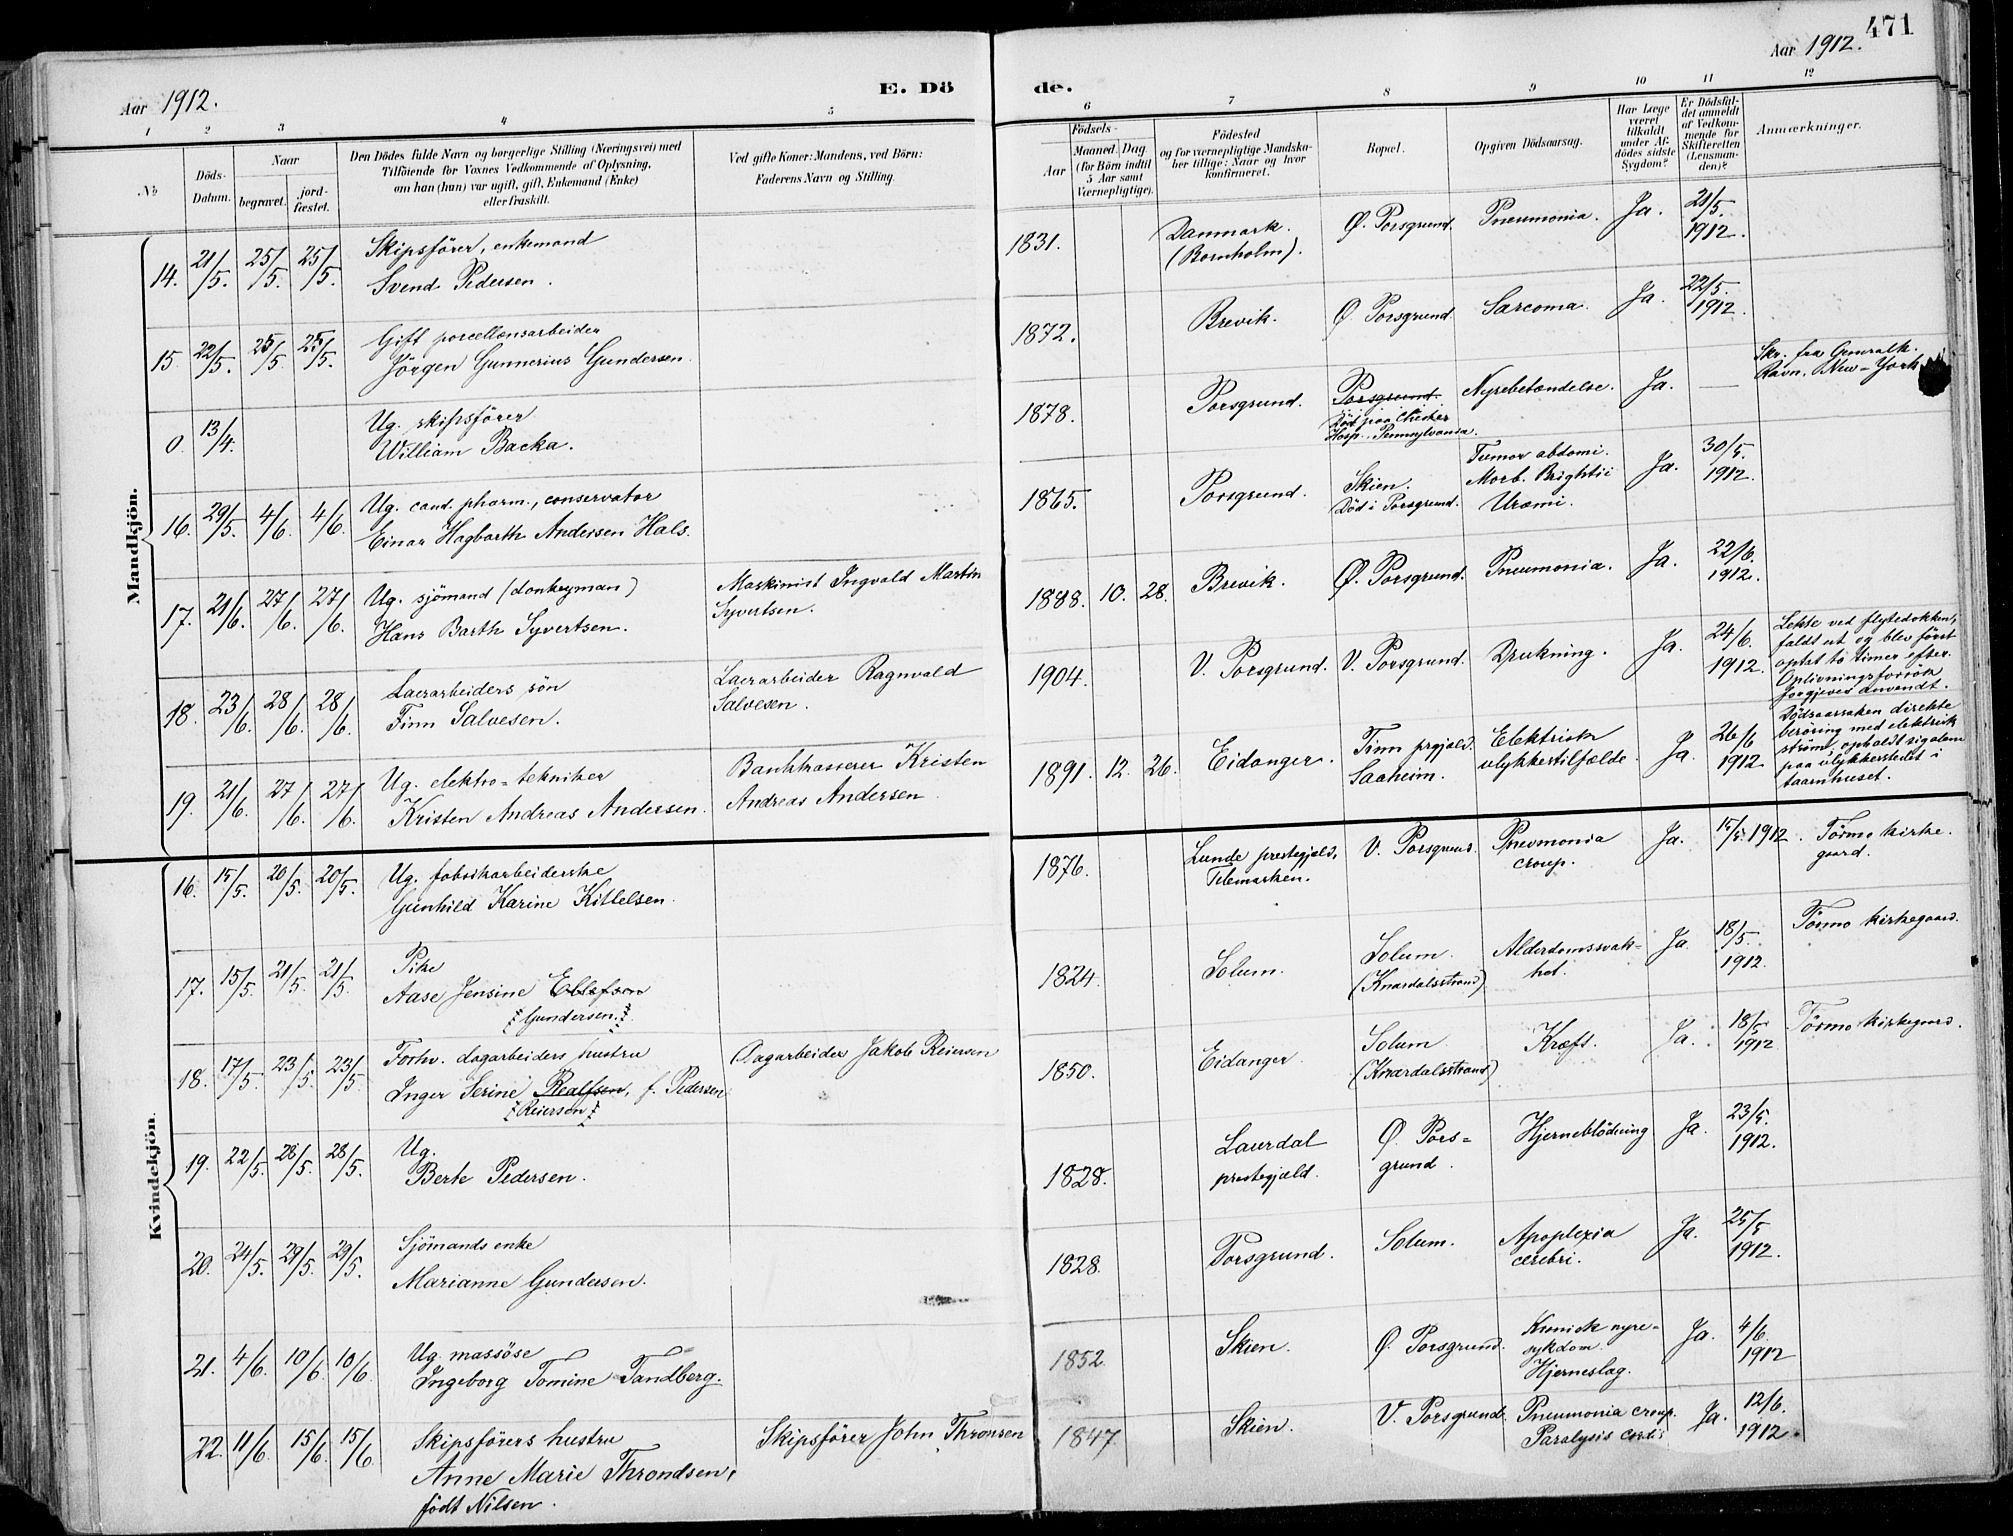 471
Aar 1912.
E. Dö
de.
Aar 1912.
1 2 3 4 5 6 7 8 9 10 11 12
No
Döds-
Datum.
Naar
begravet.
jord-
fæstet.
Den Dödes fulde Navn og borgerlige Stilling (Næringsvei) med
Tilföiende for Voxnes Vedkommende af Oplysning,
om han (hun) var ugift, gift, Enkemand (Enke)
eller fraskilt.
Ved gifte Koner: Mandens, ved Börn:
Faderens Navn og Stilling.
Födsels-
Aar
Maaned. Dag
(for Börn indtil
5 Aar samt
Værnepligtige).
Födested
og for værnepligtige Mandska-
ber tillige: Naar og hvor
konfirmeret.
Bopæl.
Opgiven Dödsaarsag.
Har Læge
været
tilkaldt
under Af-
dödes sidste
Sygdom?
Er Dödsfal-
det anmeldt
af Vedkom-
mende for
Skifteretten
(Lensman-
den)?
Anmærkninger.
Mandkjön.
14. 21/5. 25/5. 25/5. Skipsförer, enkemand
Svend Pedersen.
1831. Danmark. (Bornholm). Ø. Porsgrund. Pneumonia. Ja. 21/5. 1912.
15. 22/5. 25/5. 25/5. Gift porcellænsarbeider
Jörgen Gunnerius Gundersen.
1872. Brevik. Ø. Porsgrund. Sarcoma. Ja. 22/5. 1912.
0. 13/4. Ug. skipsförer
William Backa.
1878. Porsgrund. Porsgrund. Död paa Chester Hosp., Pennsylvania. Nyrebetændelse. Ja. —
Skr. fra Generalk.
Ravn, New-York
16. 29/5. 4/6. 4/6. Ug. cand. pharm., conservator
Einar Hagbarth Andersen Hals.
1865. Porsgrund. Skien. Död i Porsgrund. Tumor abdomi. Morb. Brightii Uræmi. Ja. 30/5. 1912.
17. 21/6. 27/6. 27/6. Ug. sjömand (donkeyman)
Hans Barth Syvertsen.
Maskinist Ingvald Martin
Syvertsen.
1888. 10. 28. Brevik. Ø. Porsgrund. Pneumonia. Ja. 22/6. 1912.
18. 23/6. 28/6. 28/6. Laerarbeiders sön
Finn Salvesen.
Laerarbeider Ragnvald
Salvesen.
1904. V. Porsgrund. V. Porsgrund. Drukning. Ja. 24/6. 1912.
Lekte ved flytedokken,
faldt ut og blev först
optat to timer efter.
Oplivningsforsök
forgjeves anvendt.
19. 21/6. 27/6. 27/6. Ug. elektro-tekniker
Kristen Andreas Andersen.
Bankkasserer Kristen
Andreas Andersen.
1891. 12. 26. Eidanger. Tinn prgjæld. Saaheim. Elektrisk ulykkestilfælde. Ja. 26/6 1912.
Dödsaarsaken direkte
beröring med elektrisk
ström, opholdt sig alene
paa ulykkesstedet i
taarnhuset.
Kvindekjön.
16. 15/5. 20/5. 20/5. Ug. fabrikarbeiderske
Gunhild Karine Kittelsen.
1876. Lunde prestegjæld, Telemarken. V. Porsgrund. Pneumonia croup. Ja. 15/5. 1912. Törmo kirke-
gaard.
17. 15/5. 21/5. 21/5. Pike
Aase Jensine Ellefsen
Gundersen.
1824. Solum. Solum. (Knardalsstrand) Alderdomssvak-
het. Ja. 18/5. 1912. Törmo kirkegaard.
18. 17/5. 23/5. 23/5. Forhv. dagarbeiders hustru
Inger Serine Realfsen, f. Pedersen
Reiersen
Dagarbeider Jakob Reiersen
1850. Eidanger. Solum. (Knardalsstrand) Kræft. Ja. 18/5 1912. Törmo kirkegaard.
19. 22/5. 28/5. 28/5. Ug.
Berte Pedersen.
1828. Laurdal prestegjæld. Ø. Pors-
grund. Hjerneblödning Ja. 23/5. 1912.
20. 24/5. 29/5. 29/5. Sjömands enke
Marianne Gundersen.
1828. Porsgrund. Solum. Apoplexia cerebri. Ja. 25/5 1912.
21. 4/6. 10/6. 10/6. Ug. massöse
Ingeborg Tomine Tandberg.
1852. Skien. Ø. Porsgrund. Kronisk nyre-
sykdom. Hjerneslag. Ja. 4/6. 1912
22. 11/6. 15/6. 15/6. Skipsförers hustru
Anne Marie Throndsen,
födt Nilsen.
Skipsförer John Thronsen
1847. Skien. V. Porsgrund. Pneumonia croup. Paralysis Ja. 12/6. 1912.